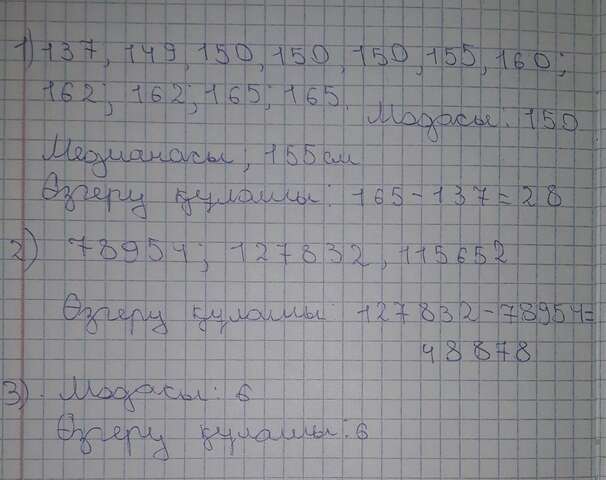 1) 137, 149, 150, 150, 150, 155, 160;
162; 162; 165; 165.
Модасы: 150
Медианасы; 155см
Өзгеру құламы: 165-137=28
2) 78954; 127832, 115652
Өзгеру құламы: 127832-78954=
48878
3). Модасы: 6
Өзгеру құламы: 6